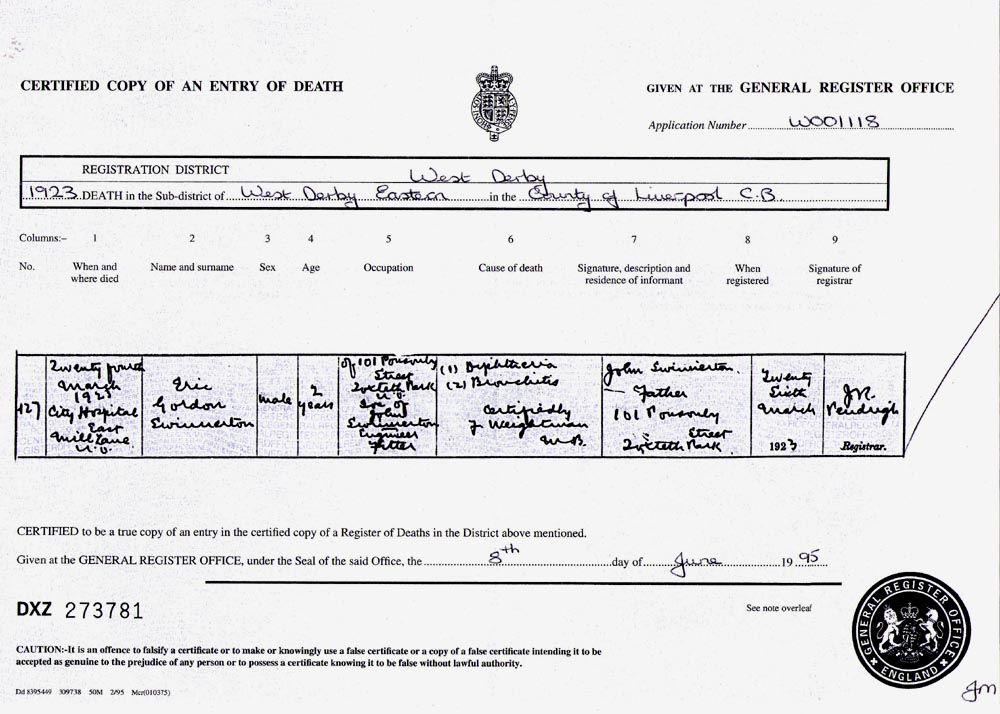 CERTIFIED COPY OF AN ENTRY OF DEATH
GIVEN AT THE GENERAL REGISTER OFFICE
Application Number W001118
REGISTRATION DISTRICT West Derby
1923 DEATH in the Sub-district of West Derby Eastern in the County of Liverpool C.B.
Columns:- 1 2 3 4 5 6 7 8 9
No. When and where died Name and surname Sex Age Occupation Cause of death Signature, description and residence of informant When registered Signature of registrar
127
Twenty fourth
March
1923
City Hospital
East
Mill Lane
U.D.
Eric
Gordon
Swinnerton
male
2
years
of 101 Ponsonby
Street
Toxteth Park
U.D.
Son of
John
Swinnerton
Engineer
Fitter
(1) Diphtheria
(2) Bronchitis
Certified by
J Weightman
M.B.
John Swinnerton.
Father
101 Ponsonby
Street
Toxteth Park
Twenty
Sixth
March
1923
Registrar.
CERTIFIED to be a true copy of an entry in the certified copy of a Register of Deaths in the District above mentioned.
Given at the GENERAL REGISTER OFFICE, under the Seal of the said Office, the 8th day of June 1995
DXZ 273781
See note overleaf
CAUTION:-It is an offence to falsify a certificate or to make or knowingly use a false certificate or a copy of a false certificate intending it to be
accepted as genuine to the prejudice of any person or to possess a certificate knowing it to be false without lawful authority.
Dd 8395449 309738 50M 2/95 Mcr(010375)
GENERAL REGISTER OFFICE
ENGLAND
JM